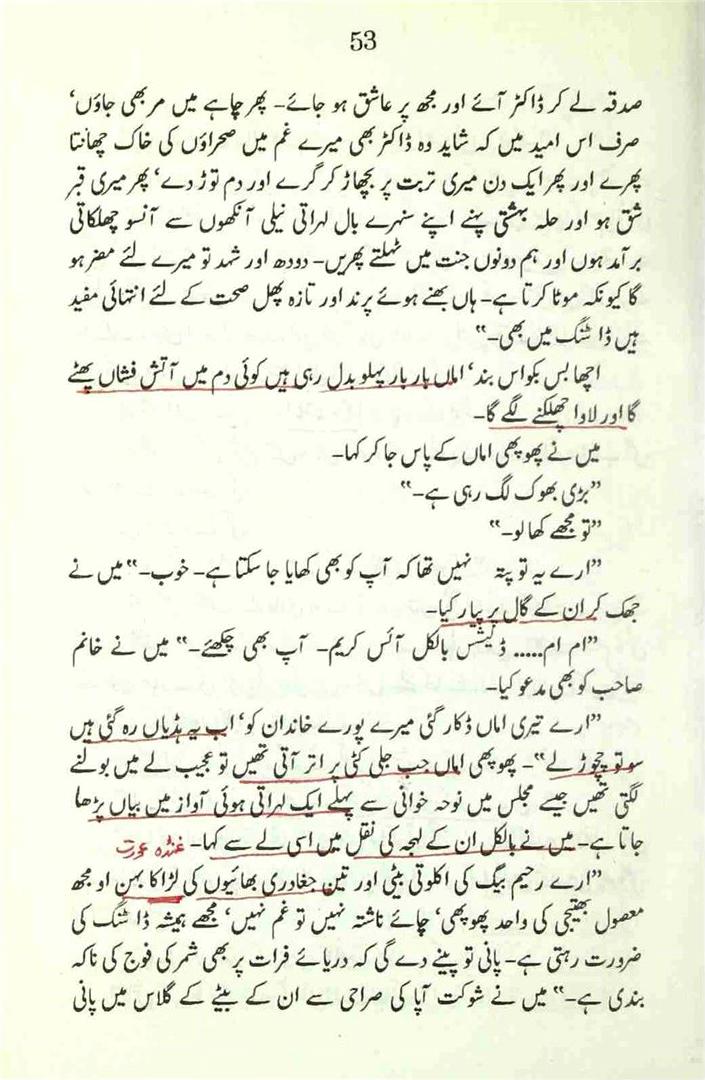 53
صدقہ لے کر ڈاکٹر آئے اور مجھ پر عاشق ہو جائے۔ پھر چاہے میں مر بھی جاؤں‘
صرف اس امید میں کہ شاید وہ ڈاکٹر بھی میرے غم میں صحراؤں کی خاک چھانتا
پھرے اور پھر ایک دن میری تربت پر پچھاڑ کر گرے اور دم توڑ دے‘ پھر میری قبر
شق ہو اور حلہ بہشتی پہنے اپنے سنہرے بال لہراتی نیلی آنکھوں سے آنسو چھلکاتی
برآمد ہوں اور ہم دونوں جنت میں ٹہلتے پھریں۔ دودھ اور شہد تو میرے لئے مضر ہو
گا کیونکہ موٹا کرتا ہے۔ ہاں بھنے ہوئے پرند اور تازہ پھل صحت کے لئے انتہائی مفید
ہیں ڈائٹنگ میں بھی۔“
اچھا بس بکواس بند‘ اماں بار بار پہلو بدل رہی ہیں کوئی دم میں آتش فشاں پھٹے
گا اور لاوا چھلکنے لگے گا۔
میں نے پھوپھی اماں کے پاس جا کر کہا۔
”بڑی بھوک لگ رہی ہے۔“
”تو مجھے کھا لو۔“
”ارے یہ تو پتہ نہیں تھا کہ آپ کو بھی کھایا جا سکتا ہے۔ خوب۔“ میں نے
جھک کر ان کے گال پر پیار کیا۔
”ام ام..... ڈیلیشس بالکل آئس کریم۔ آپ بھی چکھئے۔“ میں نے خانم
صاحب کو بھی مدعو کیا۔
”ارے تیری اماں ڈکار گئی میرے پورے خاندان کو‘ اب یہ ہڈیاں رہ گئی ہیں
سو تو چچوڑ لے“۔ پھوپھی اماں جب جلی کٹی پر اتر آتی تھیں تو عجیب لے میں بولنے
لگتی تھیں جیسے مجلس میں نوحہ خوانی سے پہلے ایک لہراتی ہوئی آواز میں بیاں پڑھا
جاتا ہے۔ میں نے بالکل ان کے لہجہ کی نقل میں اسی لے سے کہا۔ غنڈہ عورت
”ارے رحیم بیگ کی اکلوتی بیٹی اور تین جغادری بھائیوں کی لڑاکا بہن او مجھ
معصول بھتیجی کی واحد پھوپھی‘ چائے ناشتہ نہیں تو غم نہیں‘ مجھے ہمیشہ ڈائٹنگ کی
ضرورت رہتی ہے۔ پانی تو پینے دے گی کہ دریائے فرات پر بھی شمر کی فوج کی ناکہ
بندی ہے۔“ میں نے شوکت آپا کی صراحی سے ان کے بیٹے کے گلاس میں پانی